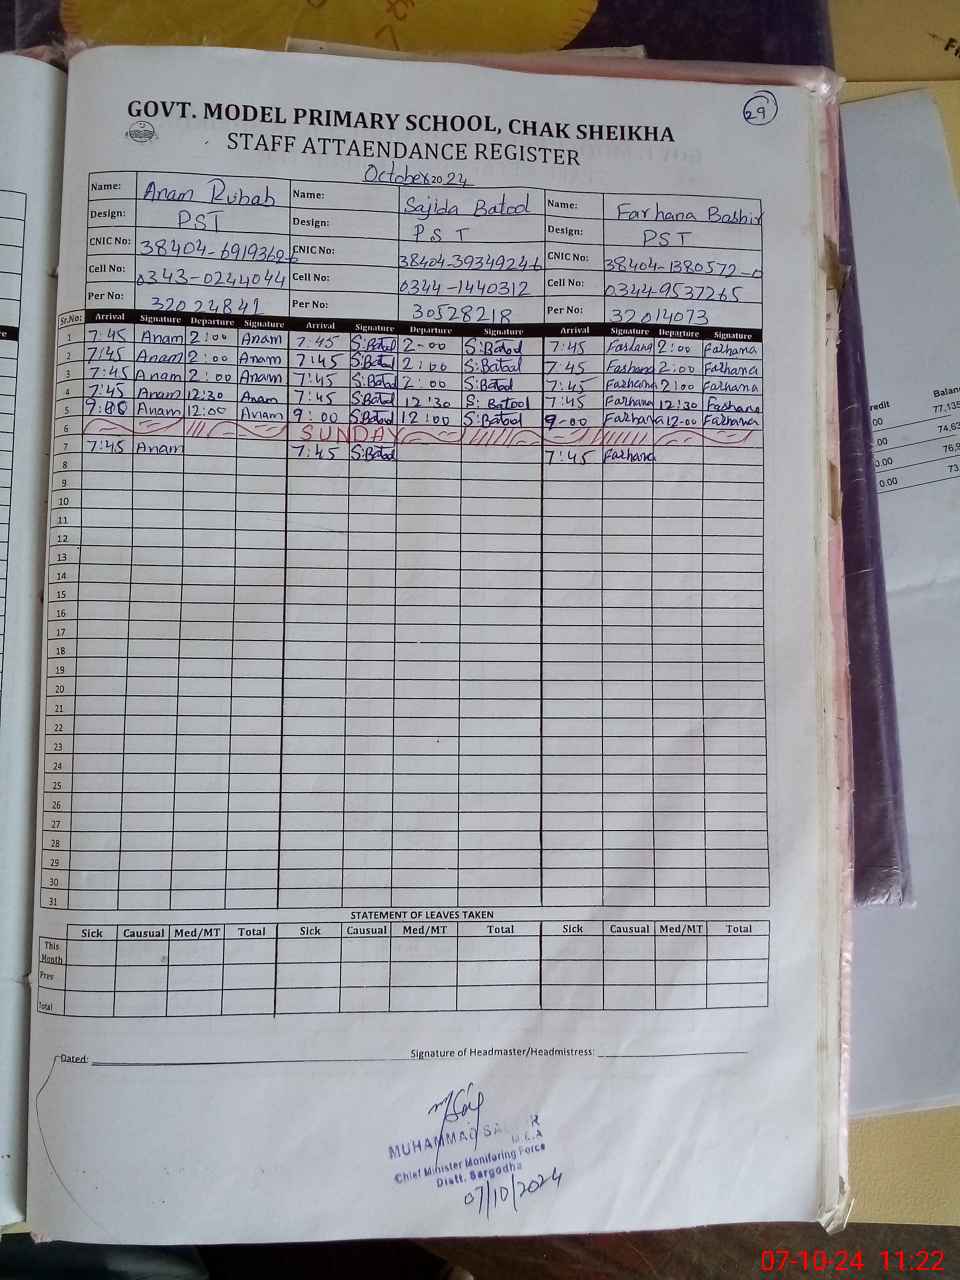 29
GOVT. MODEL PRIMARY SCHOOL, CHAK SHEIKHA
STAFF ATTAENDANCE REGISTER
October 2024
Name: Anam Rubab Name: Sajida Batool Name: Farhana Bashir
Design: PST Design: PST Design: PST
CNIC No: 38404-6919369-6 CNIC No: 38404-3934924-6 CNIC No: 38404-1380572-0
Cell No: 0343-0244044 Cell No: 0344-1440312 Cell No: 0344-9537265
Per No: 32024841 Per No: 30528218 Per No: 32014073
Sr.No: Arrival Signature Departure Signature Arrival Signature Departure Signature Arrival Signature Departure Signature
1 7:45 Anam 2:00 Anam 7:45 S:Batool 2-00 S:Batool 7:45 Farhana 2:00 Farhana
2 7:45 Anam 2:00 Anam 7:45 S:Batool 2:00 S:Batool 7:45 Farhana 2:00 Farhana
3 7:45 Anam 2:00 Anam 7:45 S:Batool 2:00 S:Batool 7:45 Farhana 2:00 Farhana
4 7:45 Anam 12:30 Anam 7:45 S:Batool 12:30 S:Batool 7:45 Farhana 12:30 Farhana
5 9:00 Anam 12:00 Anam 9:00 S:Batool 12:00 S:Batool 9-00 Farhana 12-00 Farhana
6 SUNDAY
7 7:45 Anam 7:45 S:Batool 7:45 Farhana
8
9
10
11
12
13
14
15
16
17
18
19
20
21
22
23
24
25
26
27
28
29
30
31
STATEMENT OF LEAVES TAKEN
Sick Causual Med/MT Total Sick Causual Med/MT Total Sick Causual Med/MT Total
This Month
Prev
Total
Dated: Signature of Headmaster/Headmistress:
MUHAMMAD
M.E.A
Chief Minister Monitoring Force
Distt. Sargodha
07/10/2024
redit Balan
00 77,135
00 74,63
0.00 76,9
0.00 73,
07-10-24 11:22